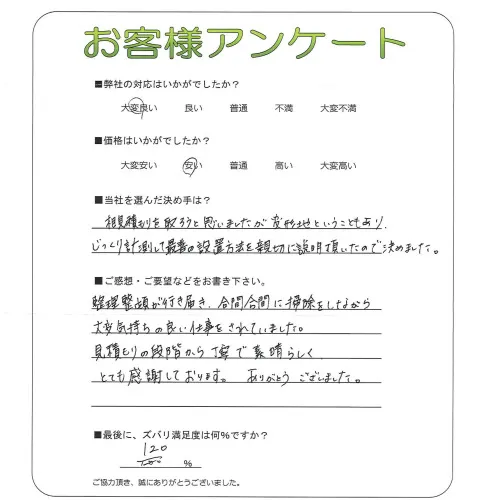 お客様アンケート
■弊社の対応はいかがでしたか？
大変良い　良い　普通　不満　大変不満
■価格はいかがでしたか？
大変安い　安い　普通　高い　大変高い
■当社を選んだ決め手は？
相見積りを取ろうと思いましたが変形地ということもあり、
じっくり計測して最善の設置方法を親切に説明頂いたので決めました。
■ご感想・ご要望などをお書き下さい。
整理整頓が行き届き、合間合間に掃除をしながら
大変気持ちの良い仕事をされていました。
見積もりの段階から丁寧で素晴らしく
とても感謝しております。　ありがとうございました。
■最後に、ズバリ満足度は何％ですか？
120
％
ご協力頂き、誠にありがとうございました。